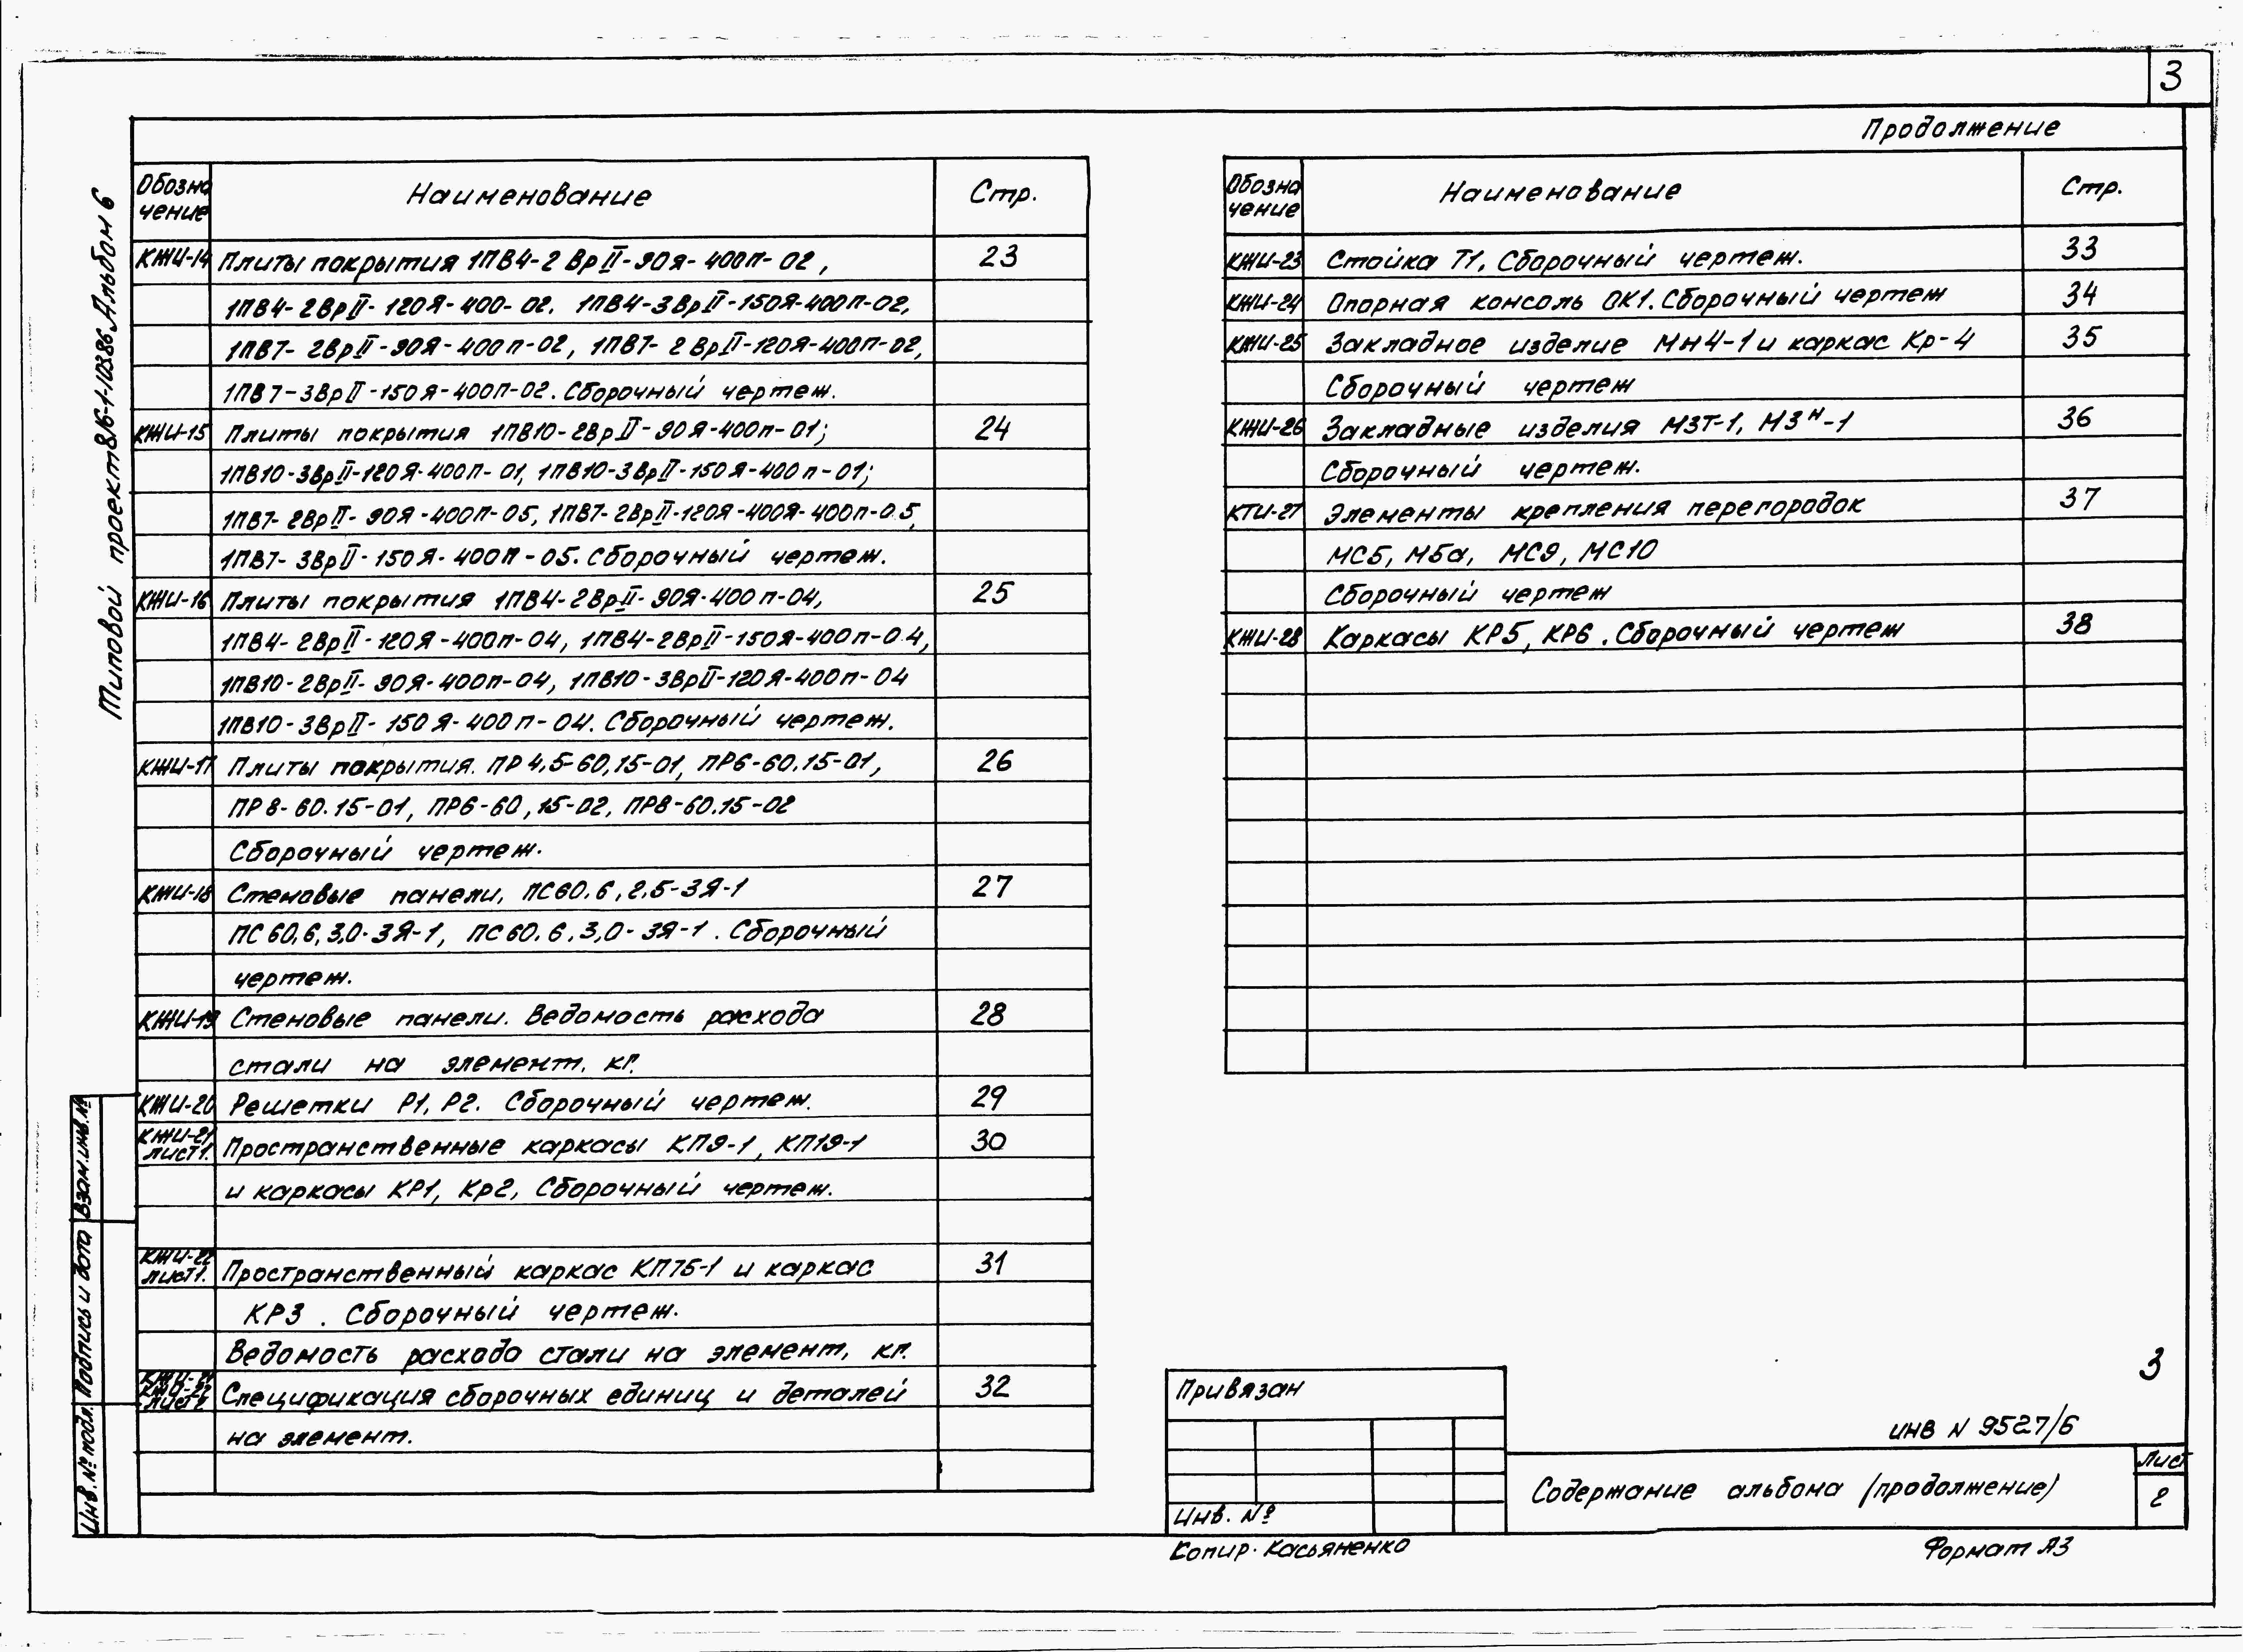 3
Продолжение
Типовой проект 816-1-103.86. Альбом 6
Обозна
чение
Наименование
Стр.
КЖИ-14 Плиты покрытия 1ПВ4-2 ВрII-90Я-400п-02, 23
1ПВ4-2ВрII-120Я-400-02. 1ПВ4-3ВрII-150Я-400п-02,
1ПВ7-2ВрII-90Я-400п-02, 1ПВ7-2ВрII-120Я-400п-02,
1ПВ7-3ВрII-150Я-400п-02. Сборочный чертеж.
КЖИ-15 Плиты покрытия 1ПВ10-2ВрII-90Я-400п-01; 24
1ПВ10-3ВрII-120Я-400п-01, 1ПВ10-3ВрII-150Я-400п-01;
1ПВ7-2ВрII-90Я-400п-05, 1ПВ7-2ВрII-120Я-400Я-400п-0.5,
1ПВ7-3ВрII-150Я-400п-05. Сборочный чертеж.
КЖИ-16 Плиты покрытия 1ПВ4-2ВрII-90Я-400п-04, 25
1ПВ4-2ВрII-120Я-400п-04, 1ПВ4-2ВрII-150Я-400п-0.4,
1ПВ10-2ВрII-90Я-400п-04, 1ПВ10-3ВрII-120Я-400п-04
1ПВ10-3ВрII-150Я-400п-04. Сборочный чертеж.
КЖИ-17 Плиты покрытия. ПР4,5-60,15-01, ПР6-60.15-01, 26
ПР8-60.15-01, ПР6-60,15-02, ПР8-60.15-02
Сборочный чертеж.
КЖИ-18 Стеновые панели, ПС60.6,2,5-3Я-1 27
ПС60,6,3,0-3Я-1, ПС60.6.3,0-3Я-1. Сборочный
чертеж.
КЖИ-19 Стеновые панели. Ведомость расхода 28
стали на элемент. кг.
КЖИ-20 Решетки Р1, Р2. Сборочный чертеж. 29
КЖИ-21
лист1. Пространственные каркасы КП9-1, КП19-1 30
и каркасы КР1, Кр2, Сборочный чертеж.
КЖИ-22
лист1. Пространственный каркас КП75-1 и каркас 31
КР3. Сборочный чертеж.
Ведомость расхода стали на элемент, кг.
КЖИ-22
лист2 Спецификация сборочных единиц и деталей 32
на элемент.
Обозна
чение
Наименование
Стр.
КЖИ-23 Стойка Т1, Сборочный чертеж. 33
КЖИ-24 Опорная консоль ОК1. Сборочный чертеж 34
КЖИ-25 Закладное изделие Мн4-1 и каркас Кр-4 35
Сборочный чертеж
КЖИ-26 Закладные изделия МЗТ-1, МЗН-1 36
Сборочный чертеж.
КТИ-27 Элементы крепления перегородок 37
МС5, М5а, МС9, МС10
Сборочный чертеж
КЖИ-28 Каркасы КР5, КР6. Сборочный чертеж 38
Взам.инв.№
Подпись и дата
Инв.№подл.
3
Привязан
Инв. №
инв N 9527/6
Содержание альбома (продолжение)
Лист
2
Копир. Касьяненко
Формат А3